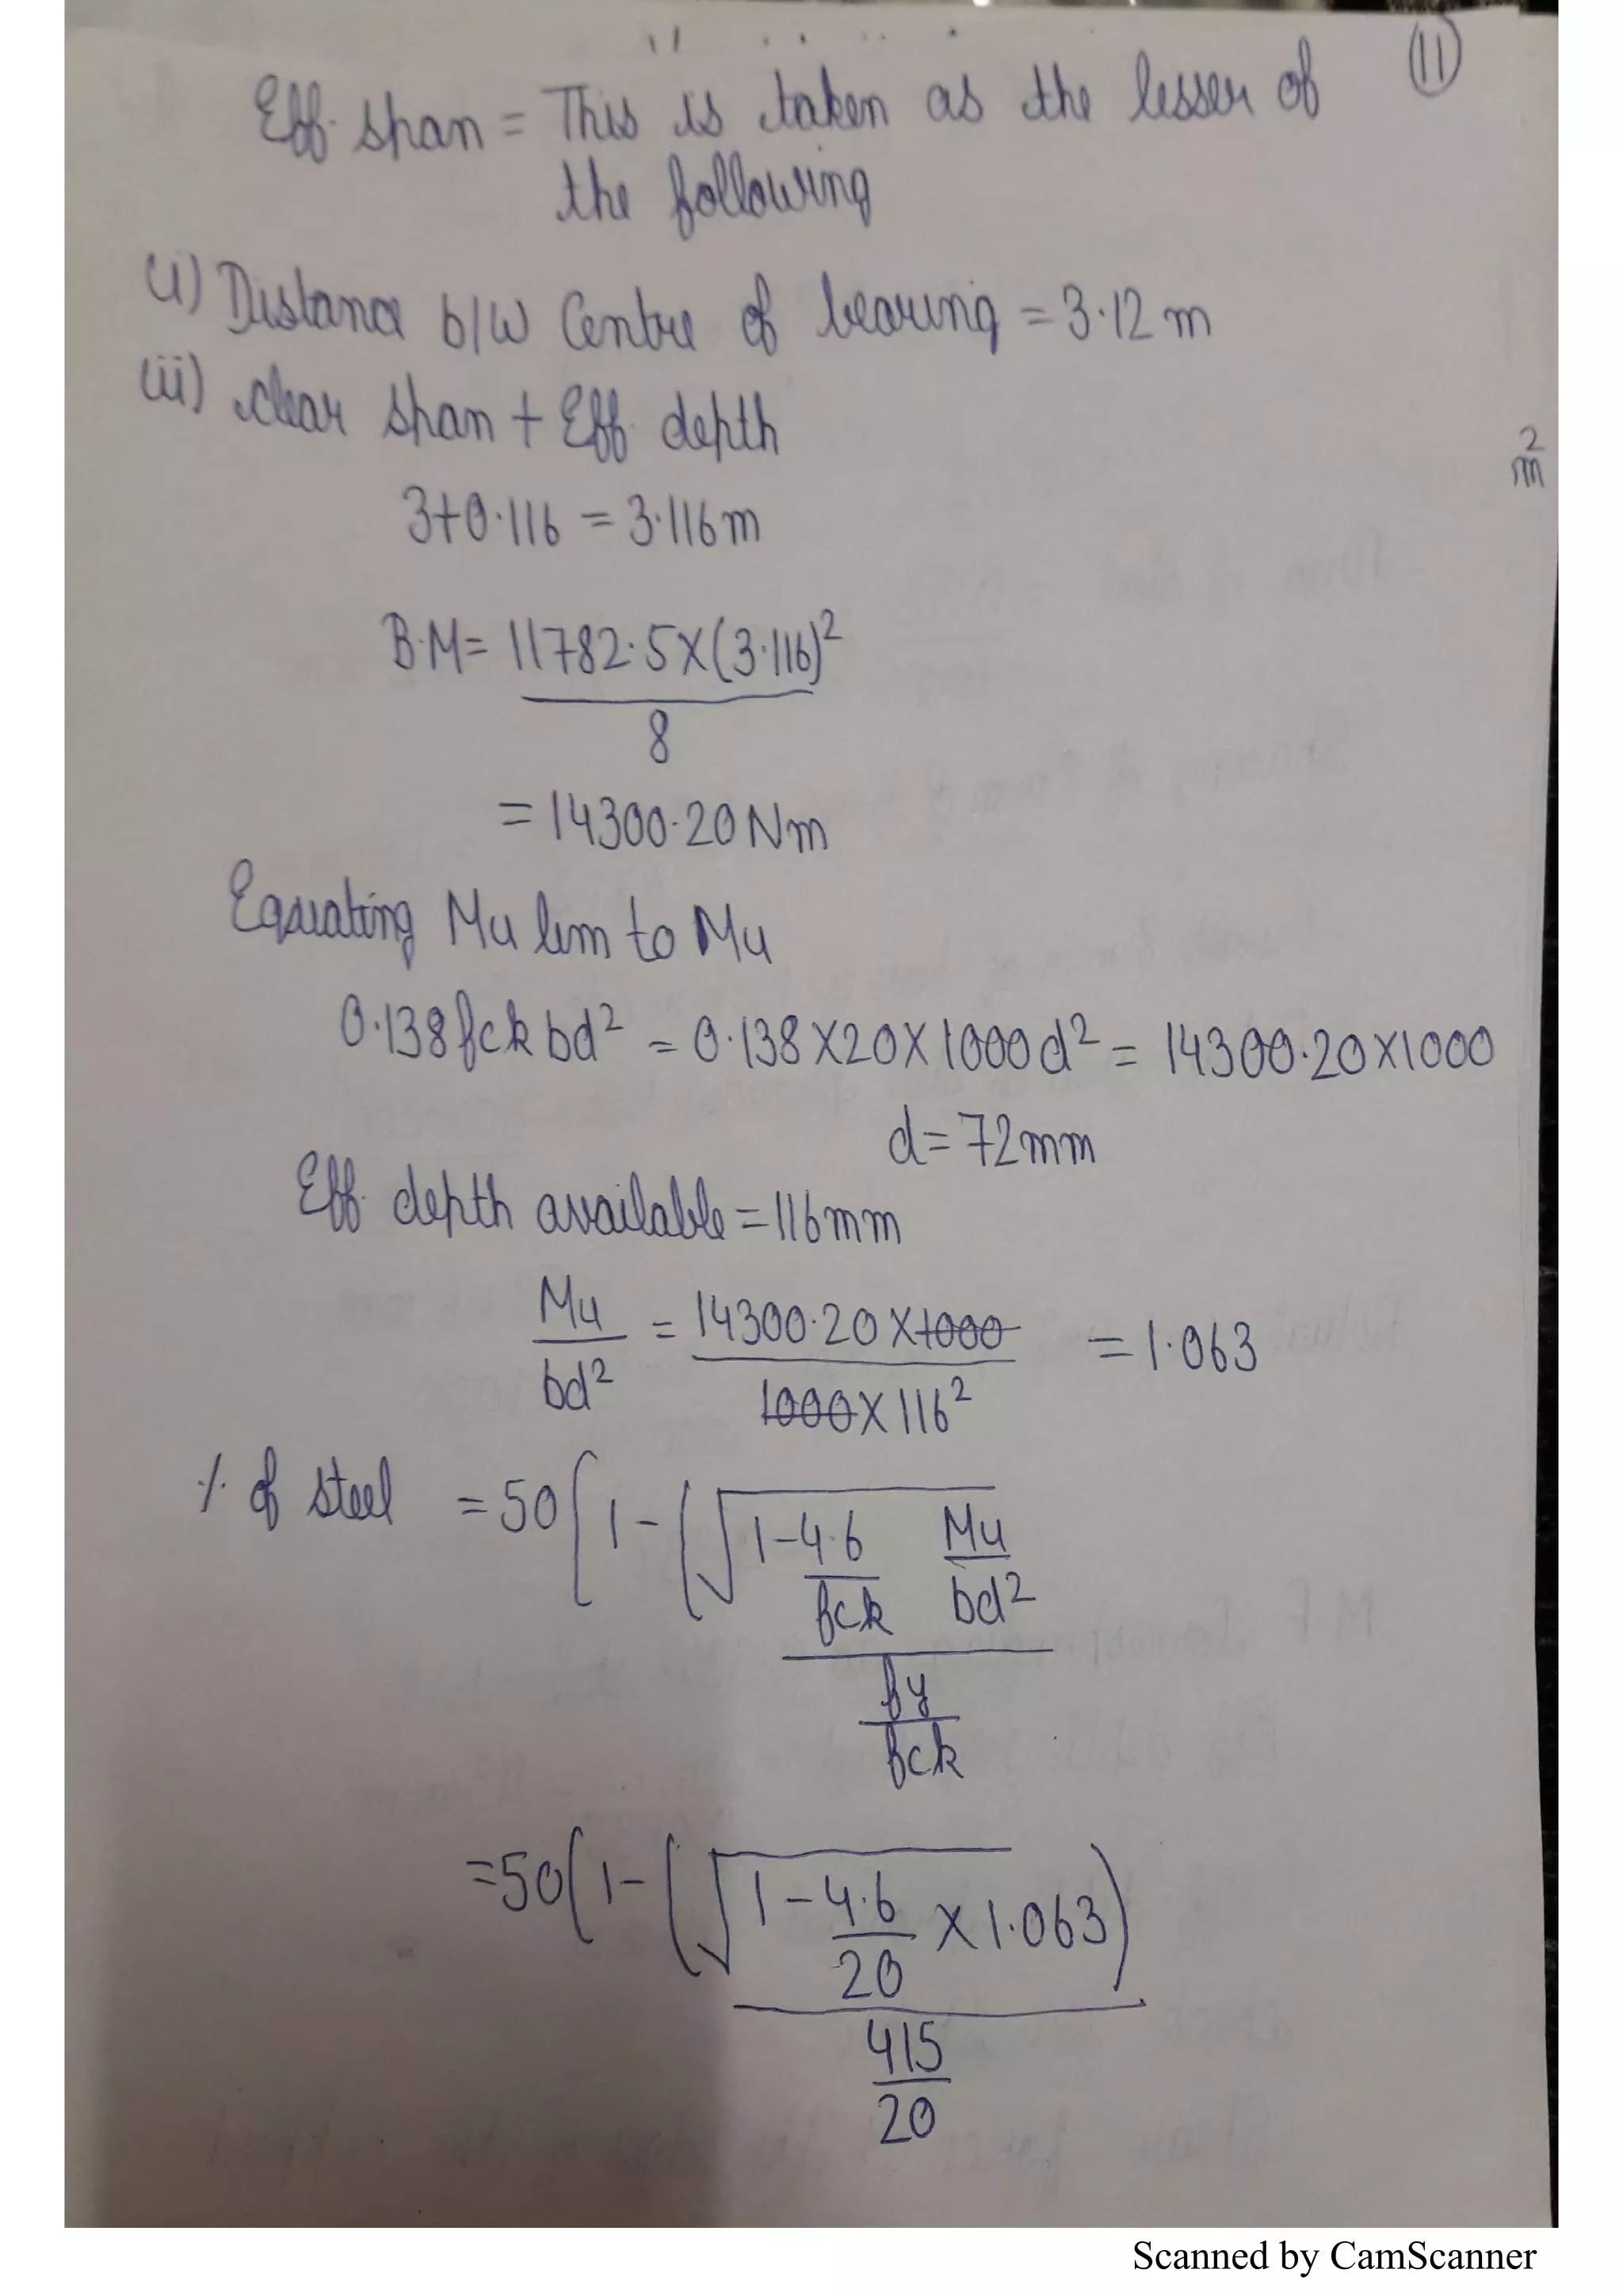 (11)
Eff. span = This is taken as the lesser of
the following
(i) Distance b/w Centre of bearing = 3.12 m
(ii) clear span + Eff. depth
m²
3+0.116 = 3.116m
B.M = 11782.5×(3.116)²
8
= 14300.20 Nm
Equating Mu lim to Mu
0.138 fck bd² = 0.138×20×1000d² = 14300.20×1000
d = 72mm
Eff. depth available = 116mm
Mu/bd² = 14300.20×1000/1000×116² = 1.063
% of steel = 50(1-(√1-4.6/fck Mu/bd²
fy/fck
=50(1-(√1-4.6/20 × 1.063)
415/20
Scanned by CamScanner